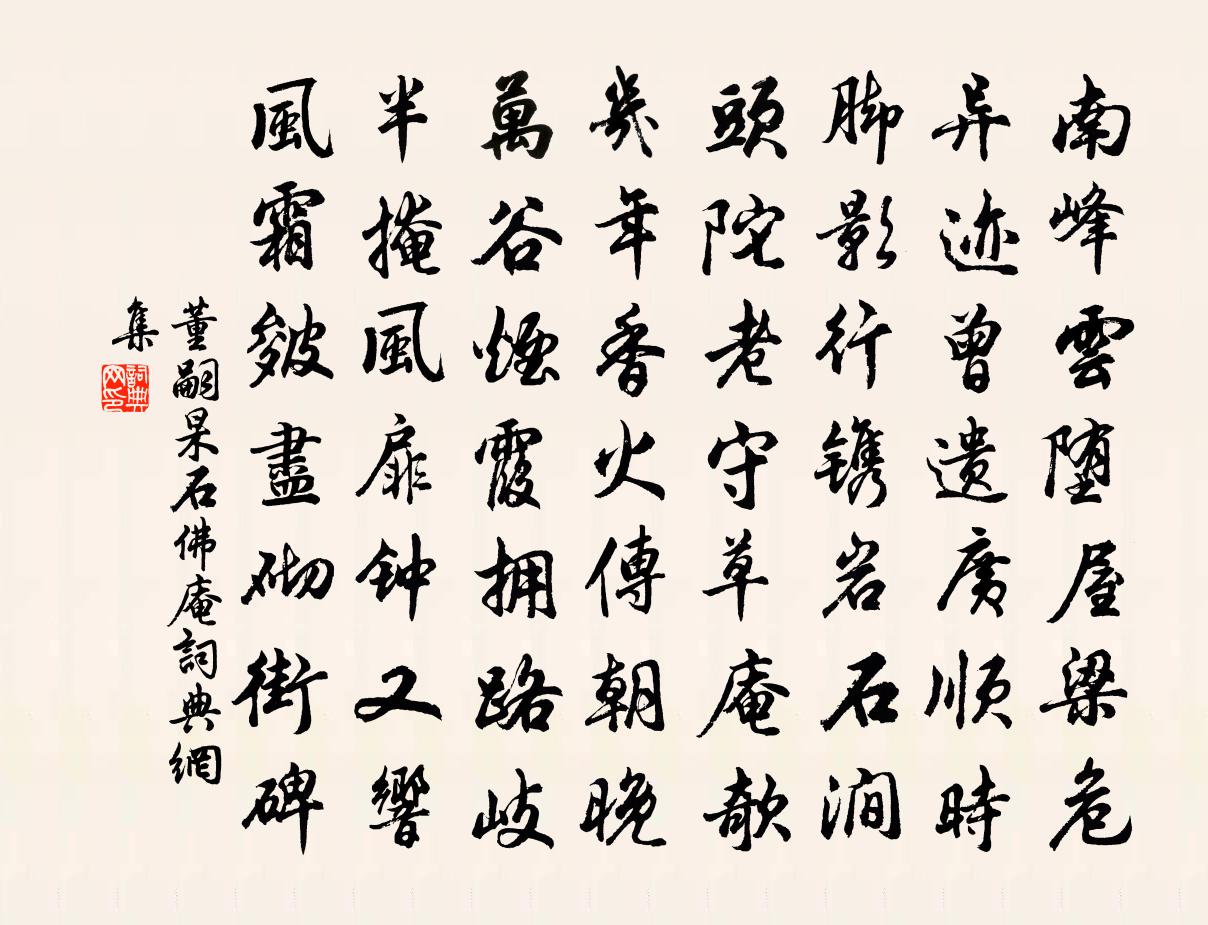 南峰雲堕屋梁危
异迹曾遗廣順時
脚影行镌岩石澗
頭陀老守草庵欹
幾年香火傳朝晚
萬谷煙霞拥路歧
半掩風扉钟又響
風霜皴盡砌街碑
董嗣杲石佛庵詞典網
集
詞典網印